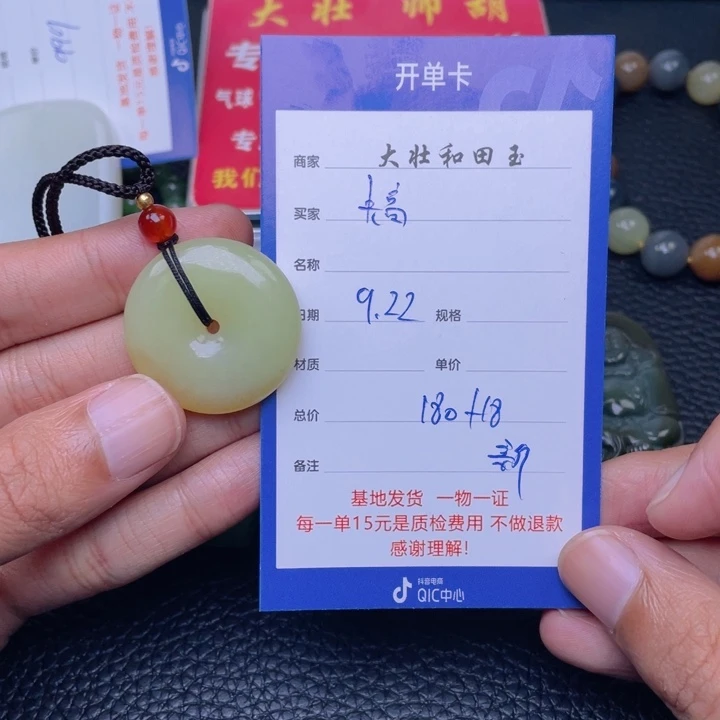 大壮 师 胡
专
气球
专
我们
开单卡
商家 大壮和田玉
买家
名称
日期 9.22 规格
材质 单价
总价 180+18
备注
基地发货 一物一证
每一单15元是质检费用 不做退款
感谢理解!
抖音电商
QIC中心
QIC